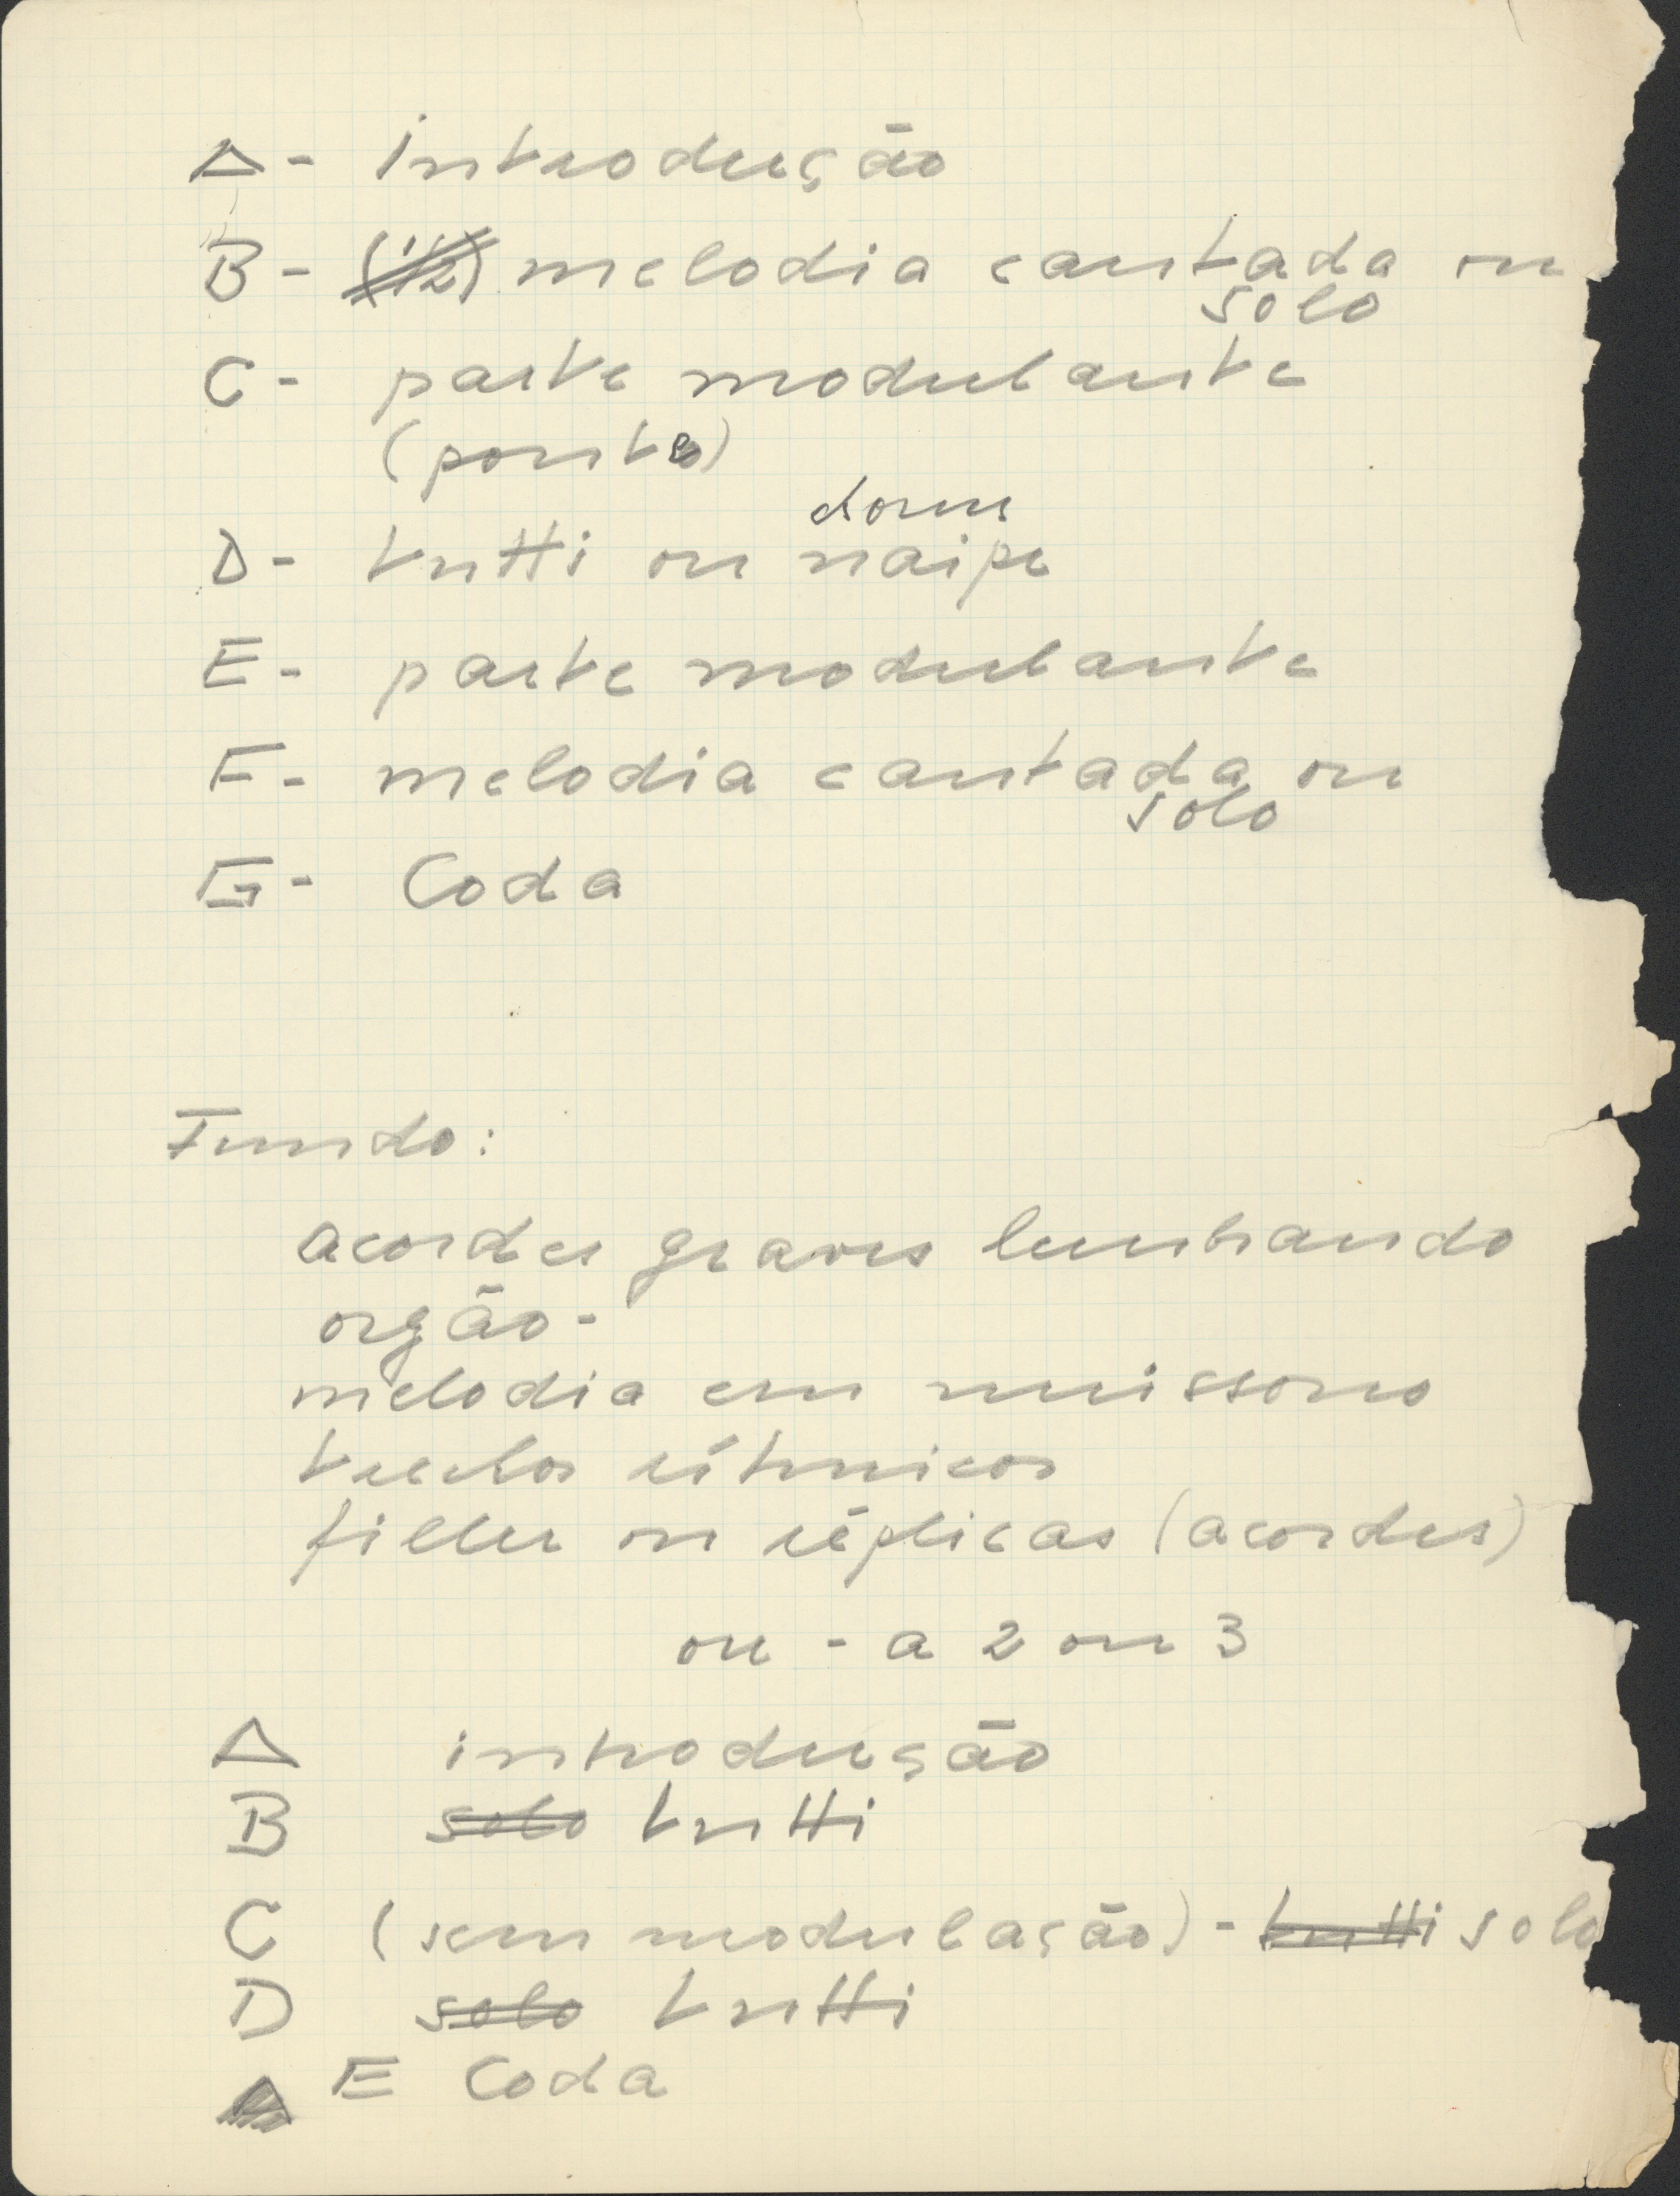 A - introdução
B - (1/2) melodia cantada ou
solo
C - parte modulante
(ponte)
D - tutti ou naipe
E - parte modulante
F - melodia cantada ou
solo
G - Coda
Fundo:
acordes graves lembrando
orgão -
melodia em unissono
trechos rítmicos
filler ou réplicas (acordes)
ou - a 2 ou 3
A introdução
B solo tutti
C (sem modulação) - tutti solo
D solo tutti
E Coda